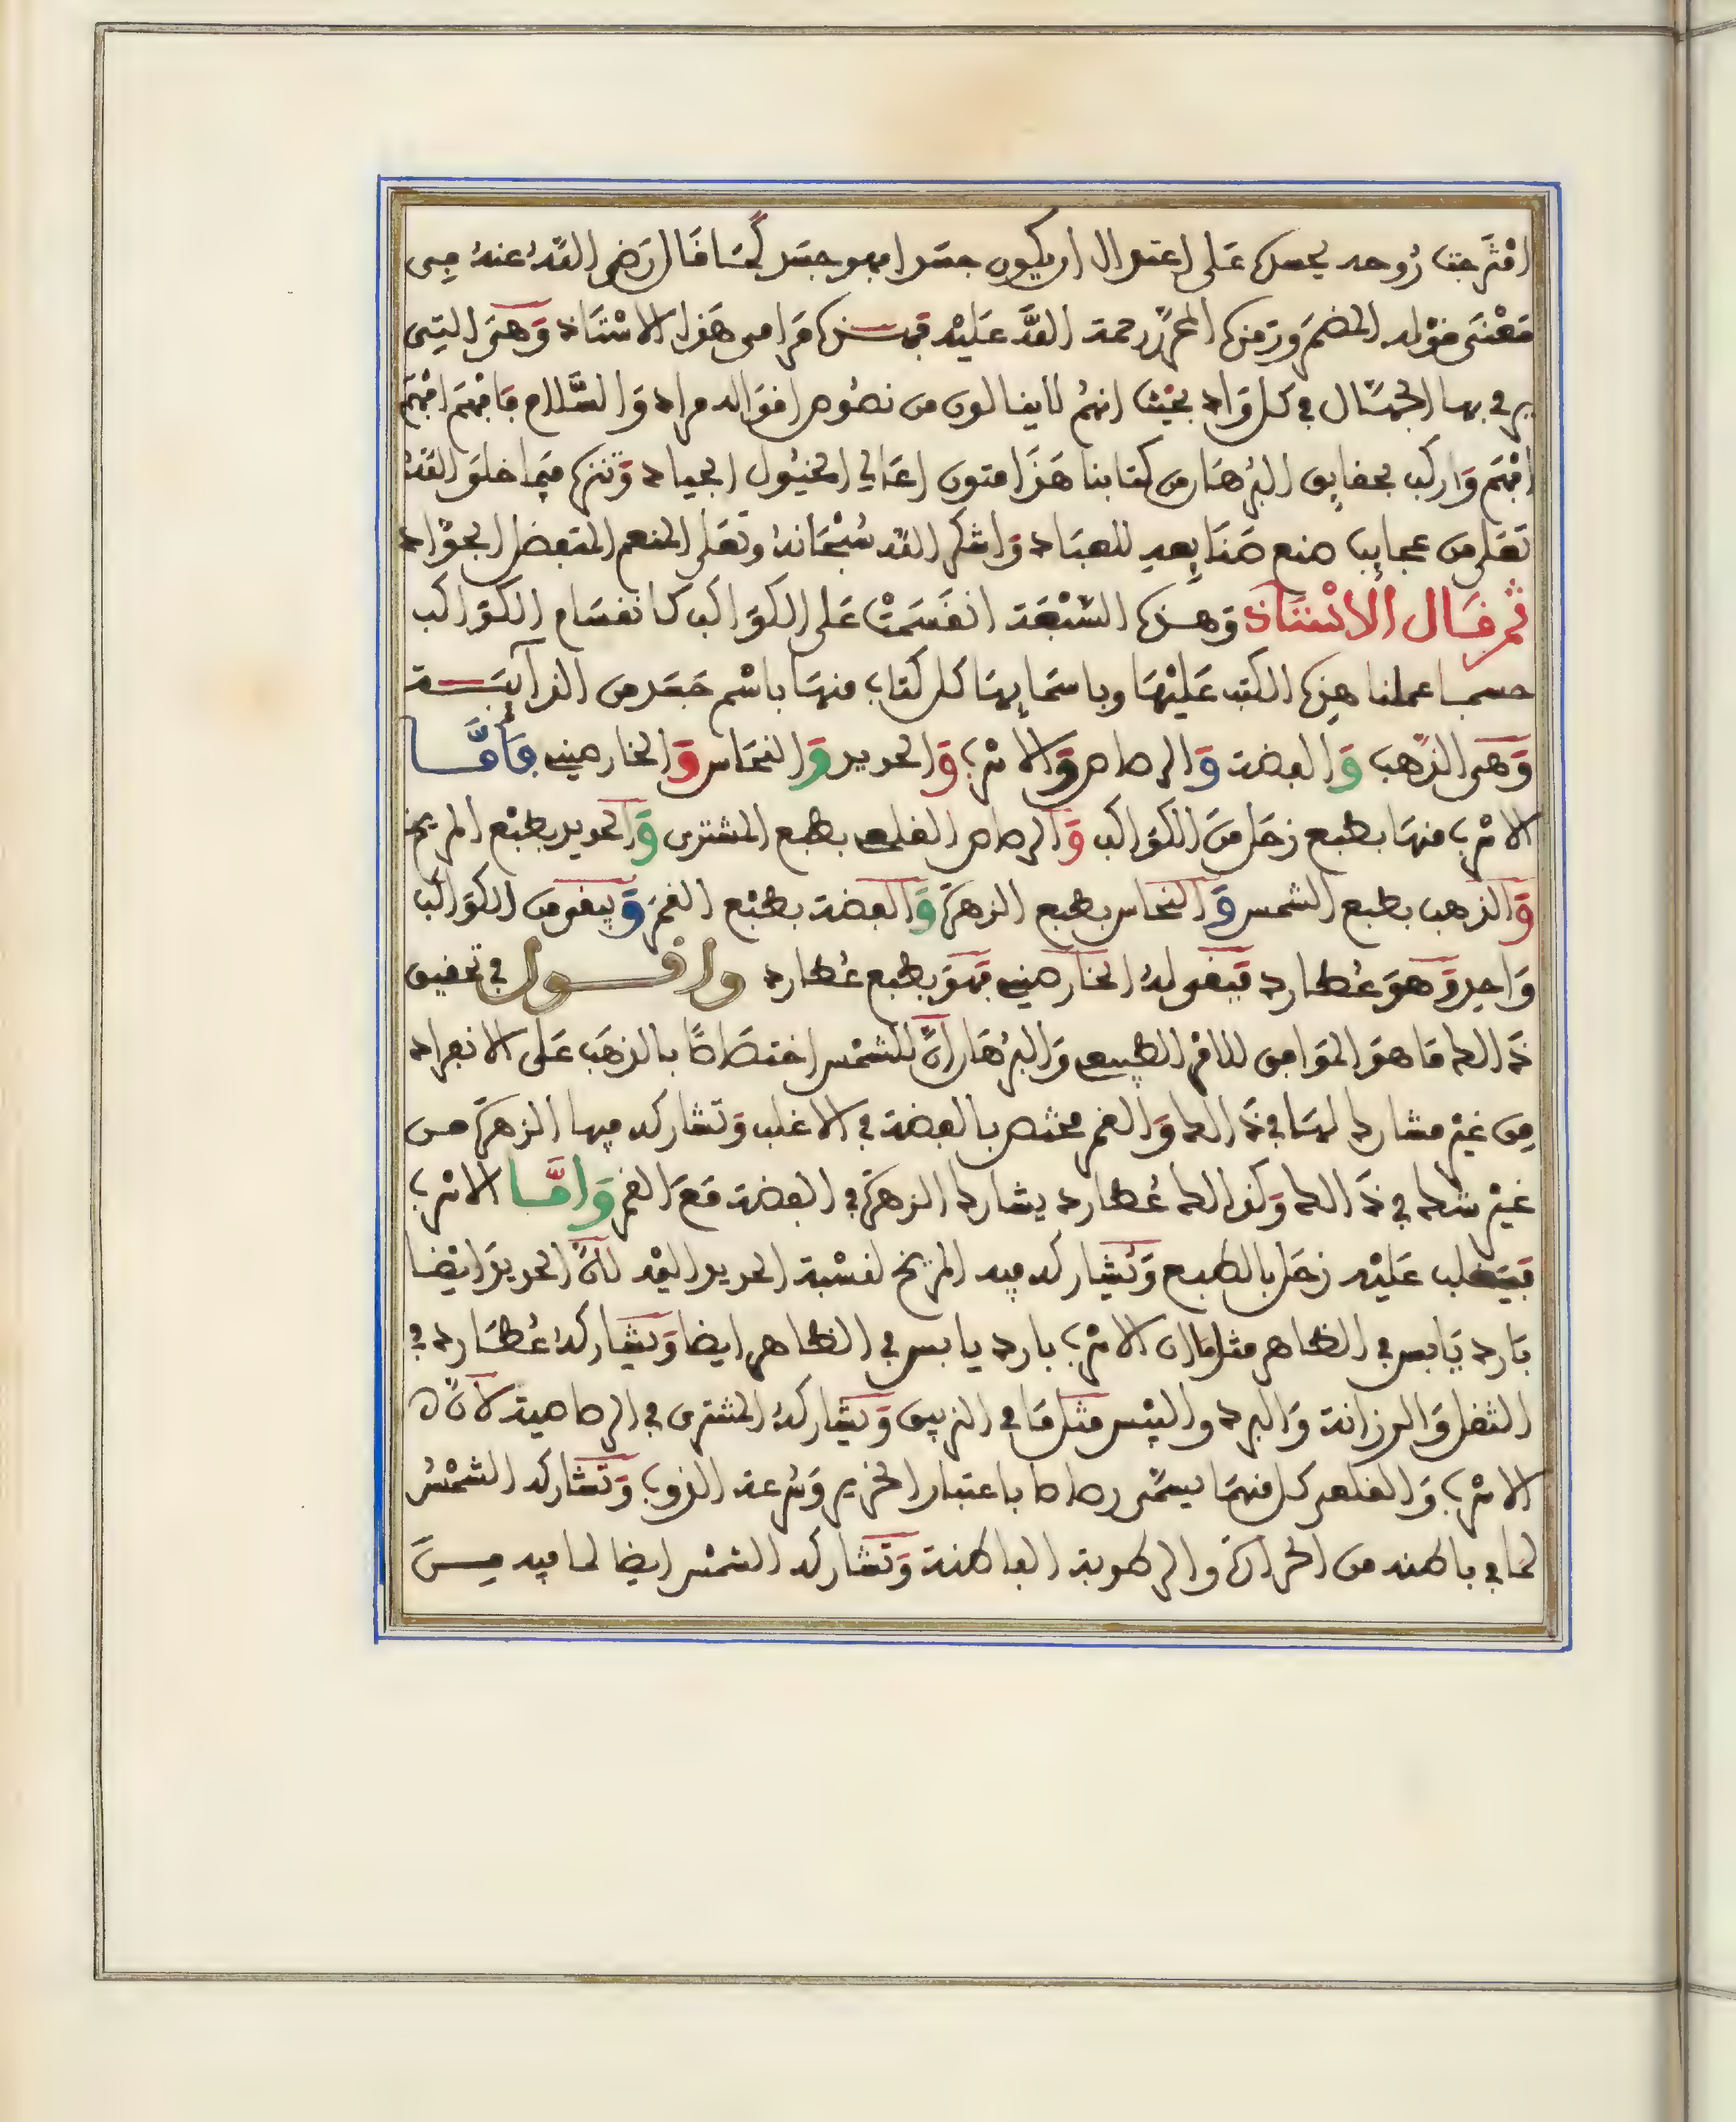 امتزجت روحه بجسده على اعتدال ان يكون جسدا فهو جسد كما قال رضي الله عنه في
معنى قوله المضمر ورمزه المحرز رحمة الله عليه فهذه مرامى هذا الاستاذ وهي التي
يرمي بها الجهال في كل واد بحيث انهم لا ينالون من نصوص اقواله مراد والسلام فافهم افهم
افهم واركب بحقايق البرهان من كتابنا هذا متون اعالي الخيول الجياد وتنزه فيما خلق الله
تعلى من عجايب صنع صنايعه للعباد واشكر الله سبحانه وتعلى المنعم المتفضل الجواد
ثم قال الاستاذ وهذه السبعة انقسمت على الكواكب كانقسام الكواكب
حسبما عملنا هذه الكتب عليها وباسمايها كل كتاب منها باسم جسد من الذآيبة
وهي الذهب والفضة والرصاص والاسرب والحديد والنحاس والخارصيني فأما
الاسرب منها بطبع زحل من الكواكب والرصاص القلعي بطبع المشتري والحديد بطبع المريخ
والذهب بطبع الشمس والنحاس بطبع الزهرة والفضة بطبع القمر وبيقى من الكواكب
واحد وهو عطارد فيبقى له الخارصيني فهو بطبع عطارد واقول في تحقيق
ذالك ما هو الموافق للامر الطبيعي والبرهان ان للشمس اختصاصا بالذهب على الانفراد
من غير مشارك لها في ذالك والقمر مختص بالفضة في الاغلب وتشاركه فيها الزهرة من
غير شك في ذالك وكذالك عطارد يشارك الزهرة في الفضة مع القمر واما الاسرب
فيغلب عليه زحل بالطبع ويشاركه فيه المريخ لنسبة الحديد اليه لان الحديد ايضا
بارد يابس في الظاهر مثل ما ان الاسرب بارد يابس في الظاهر ايضا ويشاركه عطارد في
الثقل والرزانة والبرد واليبس مثل ما في الزيبق ويشاركه المشتري في الرصاصية لان
الاسرب والقلعي كل منهما يسمى رصاصا باعتبار الخرير وسرعة الذوب وتشاركه الشمس
لما في باطنه من الحرارة والرطوبة الباطنة وتشاركه الشمس ايضا لما فيه من